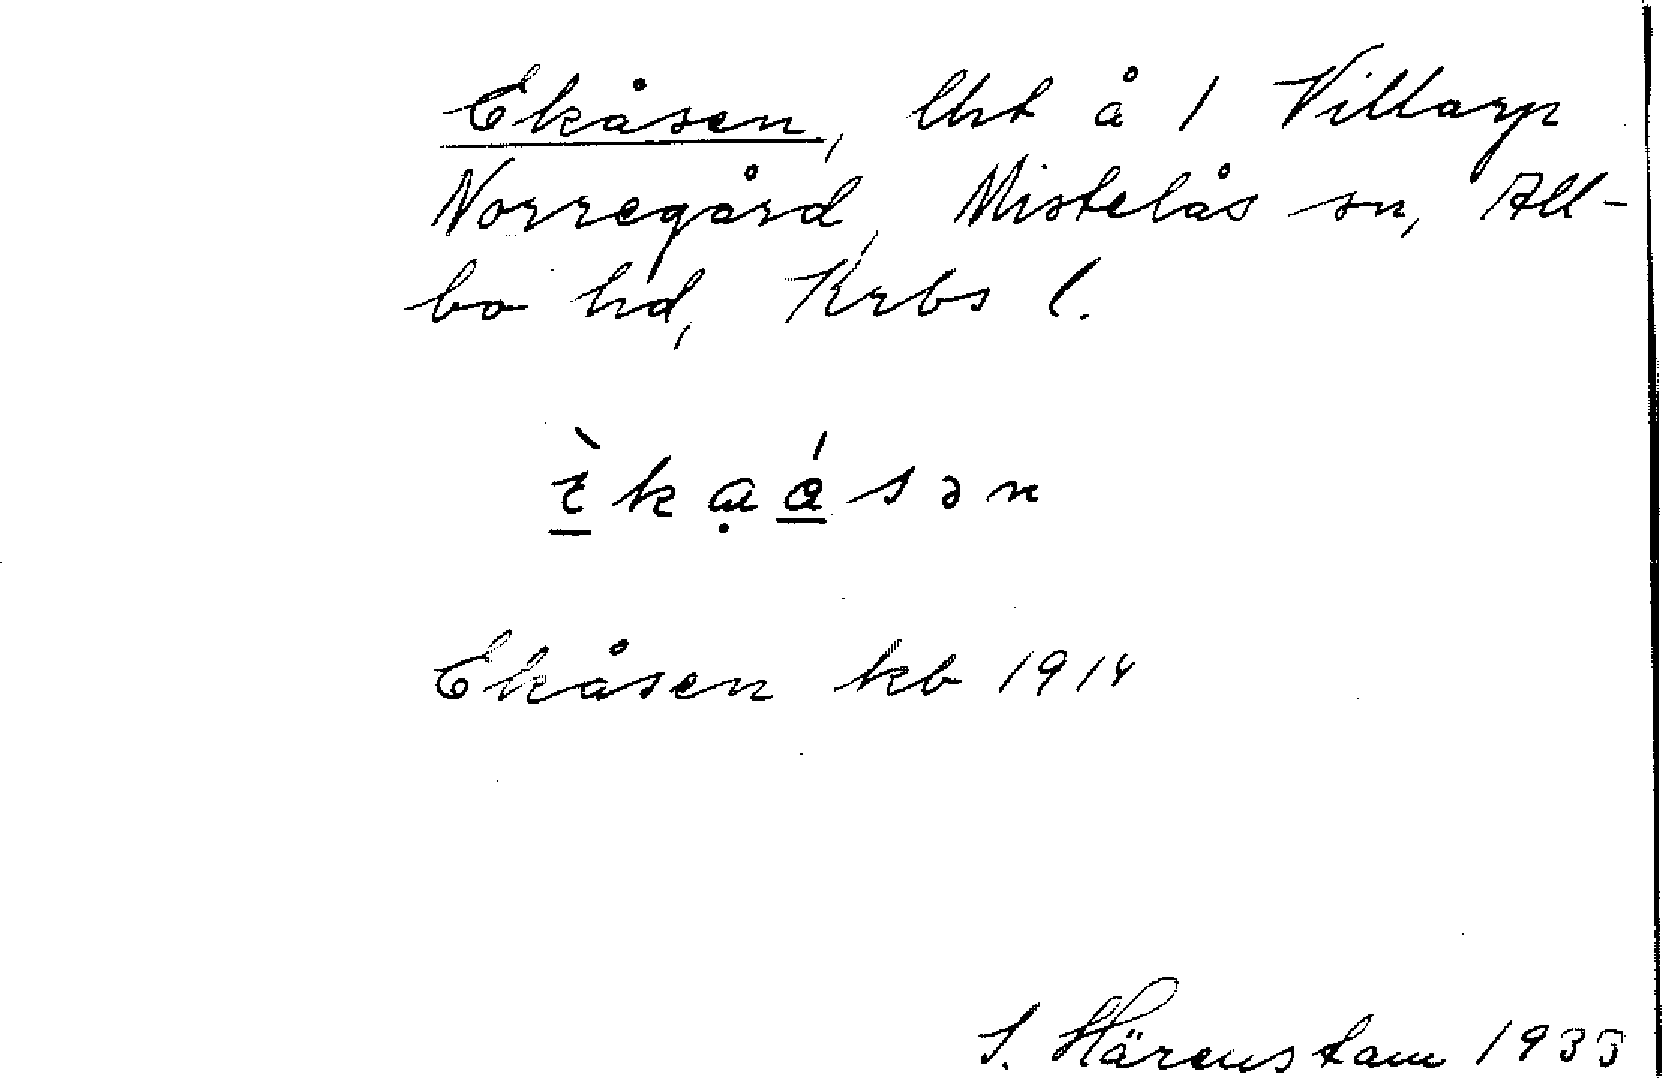 Ekåsen, lht å 1 Villarp
Norregård, Mistelås sn, All-
bo hd, Krbs l.
Ekåsen kb 1914
S. Härenstam 1933